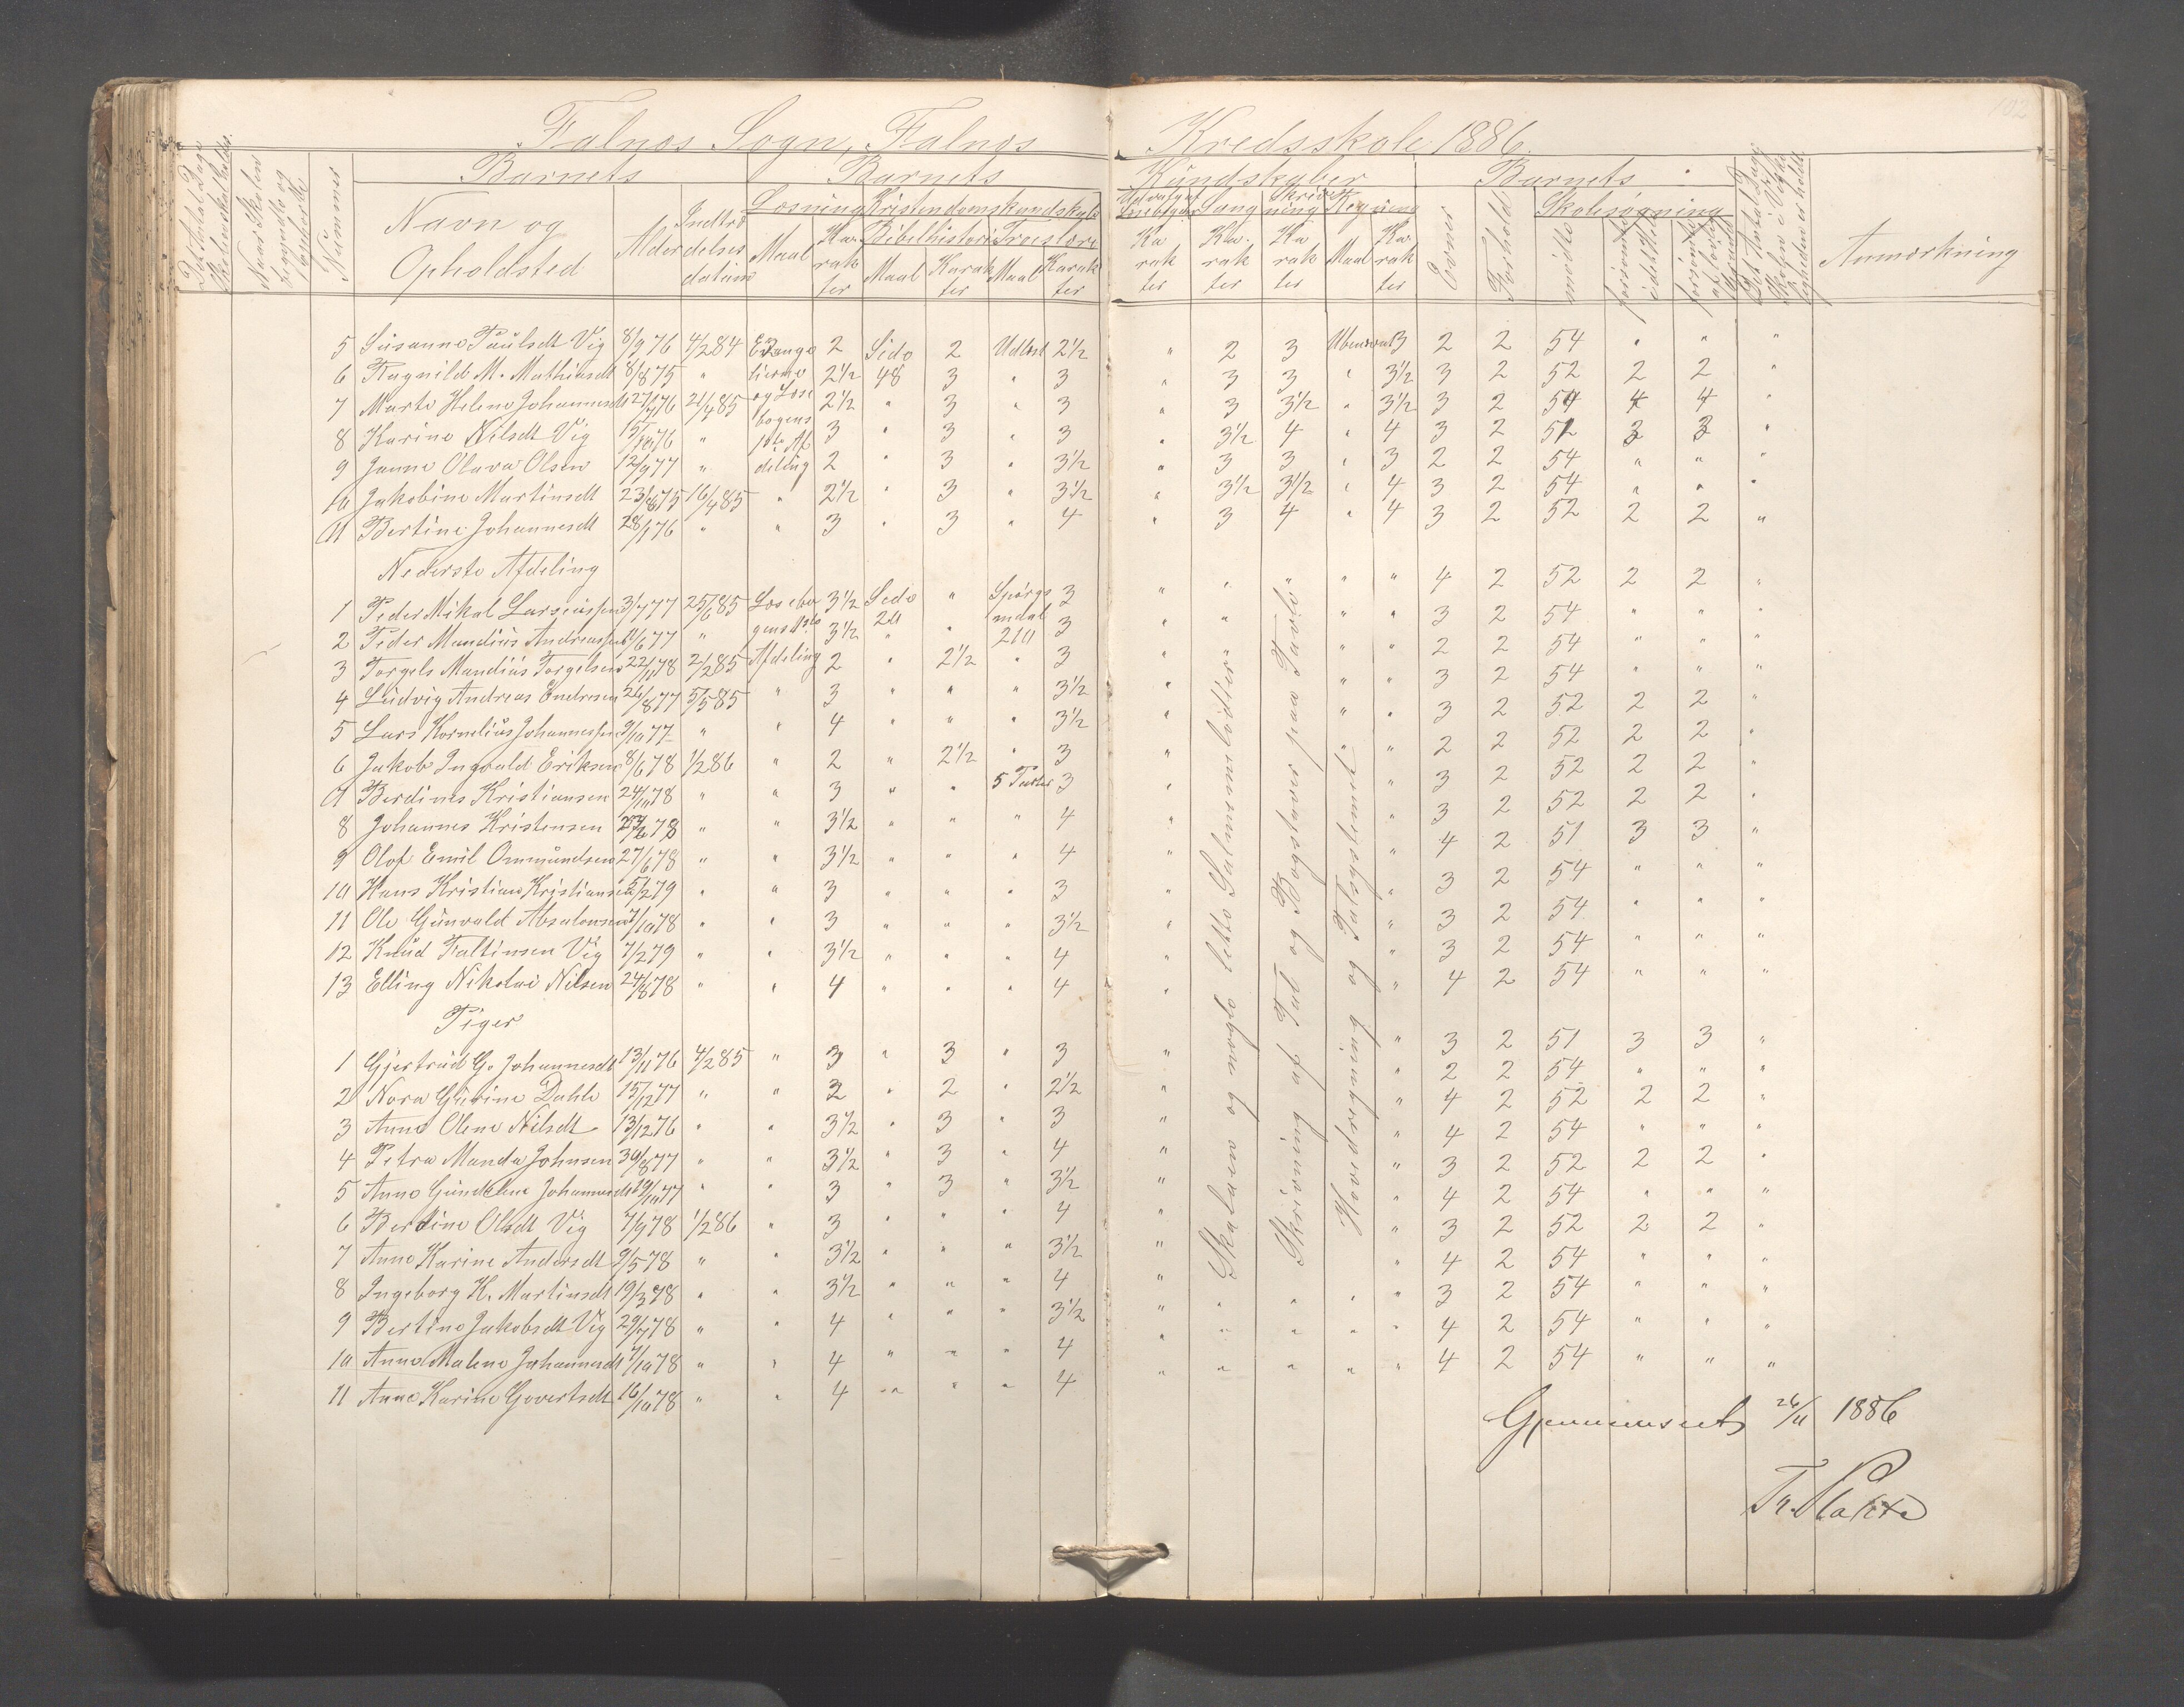 102
Falnes Sogn, Falnes Kredsskole 1886.
Barnets Barnets Kundskaber Barnets
Det Antal Dage Skolen skal holdes.
Naar Skolen begyndte og ophørte
Nummer
Navn og Opholdsted
Alder
Indtrædelsesdatum
Læsning Kristendomskundskab Udvalg af Læsebogen Sang Skrivning Regning
Bibelhistorie Troeslære
Maal Karakter Maal Karakter Maal Karakter Karakter Karakter Karakter Maal Karakter
Evner Forhold
Skolesøgning
mødte forsømte i det Hele forsømte af lovlig Grund
Det Antal Dage Skolen i Virkeligheden er holdt.
Anmærkning
5 Susanne Paulsdt Vig 8/9 76 4/2 84 Evange 2 Side 2 Udlært 2½ " 2 3 Ubenævnt 3 2 2 54 " " "
6 Ragnild M. Mathiasdt 8/8 75 " lierne 2½ 48 3 " 3 " 3 3 " 3½ 3 2 52 2 2 "
7 Marte Helene Johannesdt 27/7 76 21/4 85 og Læse 2½ " 3 " 3 " 3 3½ " 3½ 3 2 54 4 4 "
8 Karine Nilsdt Vig 15/10 76 " bogens 3 " 3 " 3 " 3½ 4 " 4 3 2 51 3 3 "
9 Janne Olava Olsen 12/9 77 " 1ste Afdeling 2 " 3 " 3½ " 3 3 " 3 2 2 54 " " "
10 Jakobine Martinsdt 23/8 75 16/4 85 " 2½ " 3 " 3½ " 3½ 3½ " 4 3 2 54 " " "
11 Bertine Johannesdt 28/1 76 " " 3 " 3 " 4 " 3 4 " 4 3 2 52 2 2 "
Nederste Afdeling
1 Peder Mikal Larsensen 3/7 77 25/6 85 Læsebo 3½ Side " Spørgs 3 " " " " " 4 2 52 2 2 "
2 Peder Mandius Andreassen 11/6 77 " gens 1ste 3½ 20 " maal 3 " " " " 3 2 54 " " "
3 Torgels Mandius Torgelsen 22/11 78 2/2 85 Afdeling 2 " 2½ 210 3 " " " 2 2 54 " " "
4 Ludvig Andreas Endresen 26/8 77 5/5 85 " 3 " " " 3½ " " " 3 2 54 " " "
5 Lars Kornelius Johannessen 9/10 77 " " 4 " " " 3½ " " " 3 2 52 2 2 "
6 Jakob Ingvald Eriksen 8/6 78 1/2 86 " 2 " 2½ " 3 " " " 2 2 52 2 2 "
7 Berdines Kristiansen 24/10 78 " " 3 " " 5 Parter 3 " " 3 2 52 2 2 "
8 Johannes Kristensen 78 " " 3½ " " " 4 " " 3 2 52 2 2 "
9 Olaf Emil Ommundsen 27/6 78 " " 3½ " " " 4 " " 4 2 51 3 3 "
10 Hans Kristian Kristiansen 5/2 79 " " 3 " " " 3 " " 3 2 54 " " "
11 Ole Gunvald Absalonsen 7/10 78 " " 3 " " " 3½ " " 3 2 54 " " "
12 Knud Faltinsen Vig 7/2 79 " " 3½ " " " 4 " " 3 2 54 " " "
13 Elling Nikolai Nilsen 24/8 78 " " 4 " " " 4 " " 4 2 54 " " "
Piger
1 Gjertrud G. Johannesdt 13/11 76 4/2 85 " 3 " 3 " 3 " " 3 2 51 3 3 "
2 Nora Gurine Dahle 15/12 77 " " 2 " 2 " 2½ " " 2 2 54 " " "
3 Anne Olene Nilsdt 13/12 76 " " 3½ " 3 " 3 " " 4 2 52 2 2 "
4 Petra Manda Johnsen 30/8 77 " " 3½ " 3 " 4 " " 4 2 54 " " "
5 Anne Gundelene Johannesdt 29/10 77 " " 3 " 3 " 3½ " " 3 2 52 2 2 "
6 Berdine Olsdt Vig 7/9 78 1/2 86 " 3 " " " 4 " " 4 2 54 " " "
7 Anne Karine Andersdt 9/5 78 " " 3½ " " " 3½ " " 3 2 52 2 2 "
8 Ingeborg K. Martinsdt 19/3 78 " " 3½ " " " 4 " " 4 2 54 " " "
9 Bertine Jakobsdt Vig 29/7 78 " " 4 " " " 3½ " " " " " 3 2 54 " " "
10 Anne Malene Johannesdt 7/10 78 " " 4 " " " 4 " " " " " 4 2 54 " " "
11 Anne Karine Govertsdt 16/10 78 " " 4 " " " 4 " " " " " 4 2 54 " " "
Skalaen og nogle lette Salmemelodier
Skrivning af Tal og Bogstaver paa Tavle
Hovedregning og Talsystemet
Gjennemseet 26/11 1886